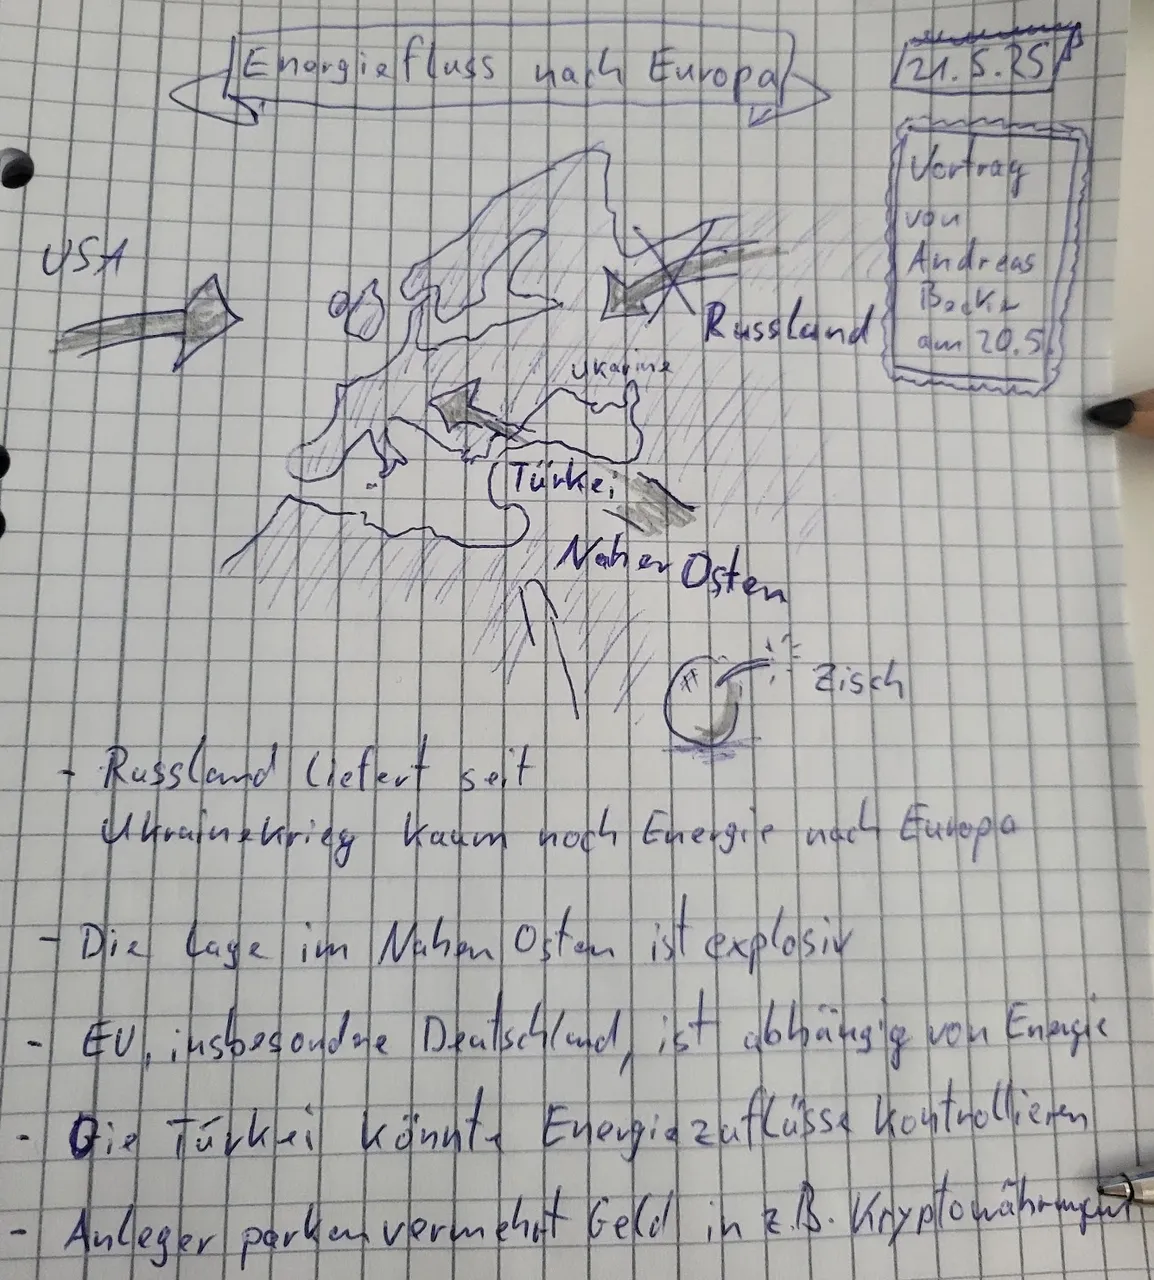 Energiefluss nach Europa
21.5.25
Vortrag
von
Andreas
am 20.5.
USA
Russland
Ukarine
Türkei
Naher Osten
Zisch
- Russland liefert seit
Ukrainekrieg kaum noch Energie nach Europa
- Die Lage im Nahen Osten ist explosiv
- EU, insbesondre Deutschland, ist abhängig von Energie
- Die Türkei könnte Energiezuflüsse kontrollieren
- Anleger parken vermehrt Geld in z.B. Kryptowährungen